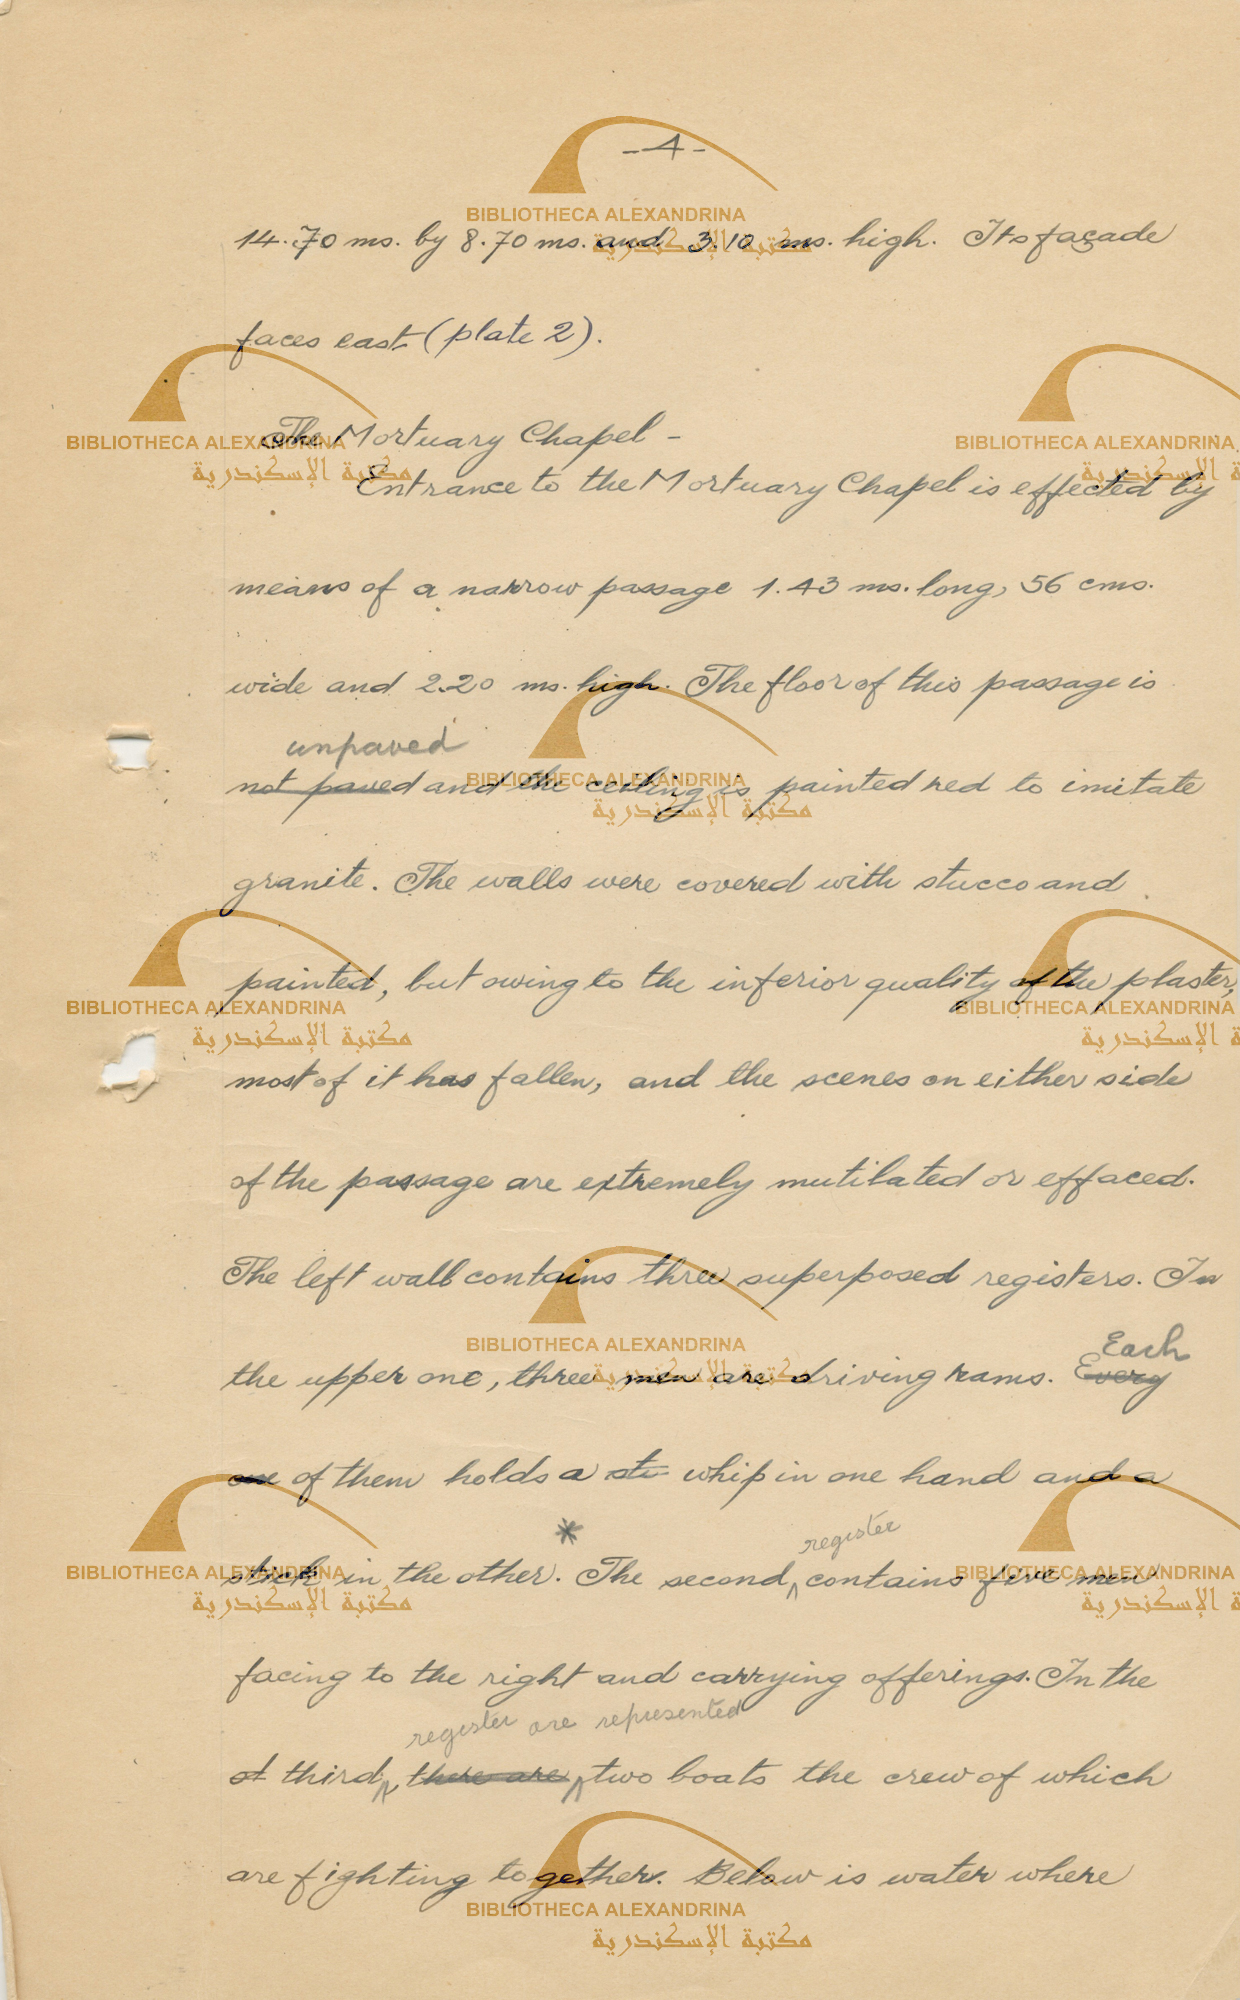 -4-
14.70 ms. by 8.70 ms. and 3.10 ms. high. Its façade
faces east (plate 2).
The Mortuary Chapel -
Entrance to the Mortuary Chapel is effected by
means of a narrow passage 1.43 ms. long, 56 cms.
wide and 2.20 ms. high. The floor of this passage is
unpaved
not paved and the ceiling is painted red to imitate
granite. The walls were covered with stucco and
painted, but owing to the inferior quality of the plaster,
most of it has fallen, and the scenes on either side
of the passage are extremely mutilated or effaced.
The left wall contains three superposed registers. In
Each
the upper one, three men are driving rams. Every
one of them holds a sti whip in one hand and a
register
stick in the other.* The second contains five men
facing to the right and carrying offerings. In the
register are represented
third there are two boats the crew of which
are fighting together. Below is water where
BIBLIOTHECA ALEXANDRINA
مكتبة الإسكندرية